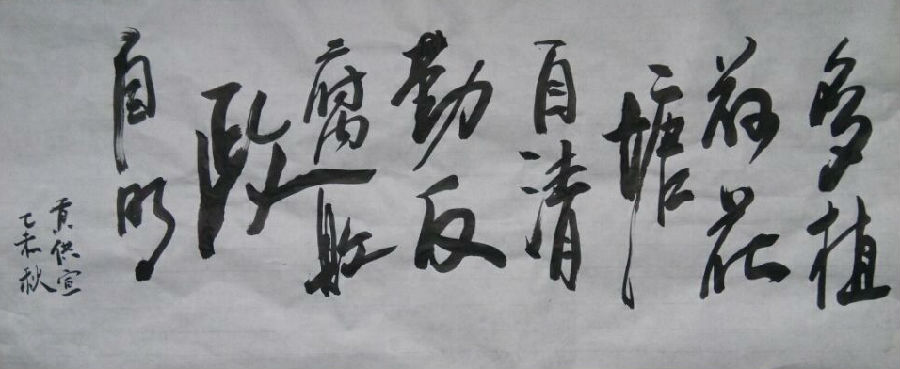 多植
荷花
塘
自清
勤反
腐敗
政
自明
宣
乙未秋